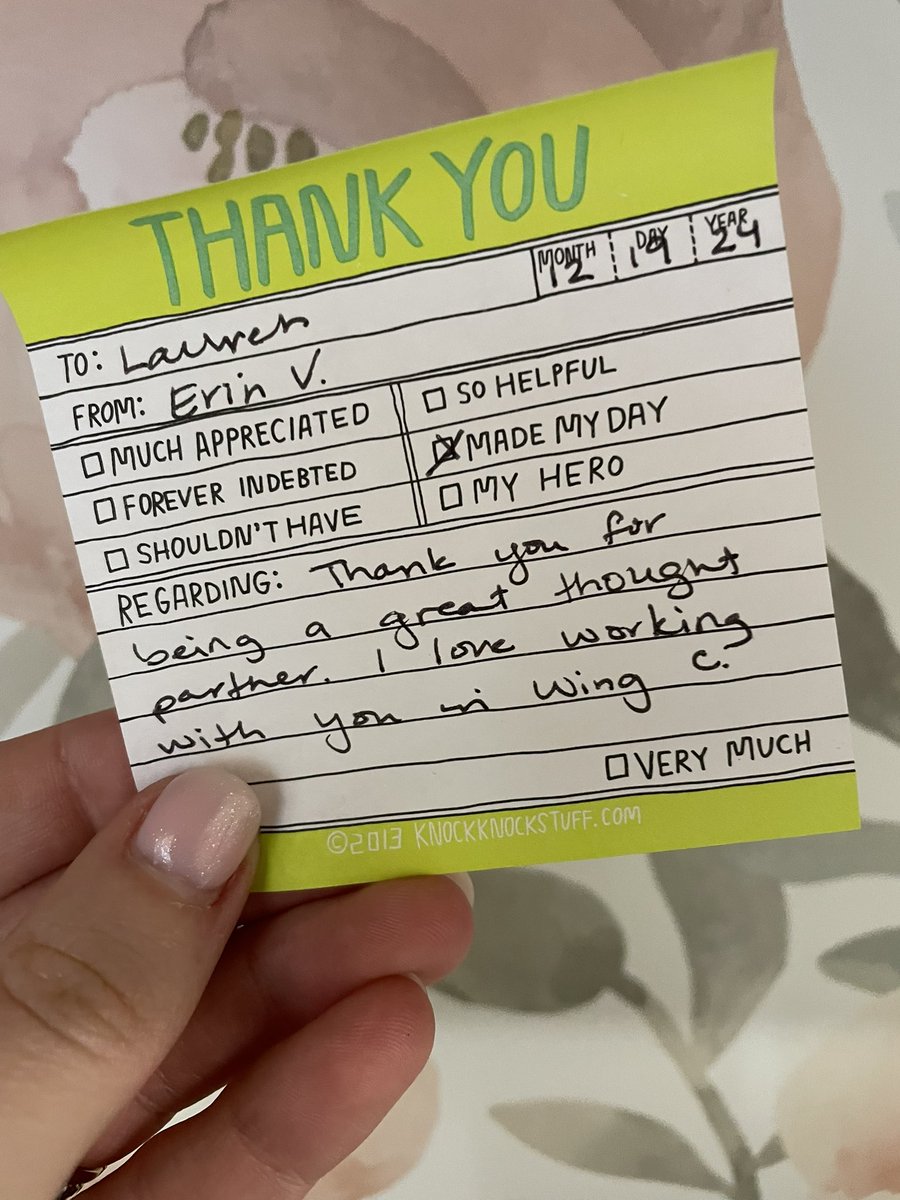 THANK YOU
MONTH DAY YEAR
12 19 24
TO: Lauren
FROM: Erin V.
☐ MUCH APPRECIATED ☐ SO HELPFUL
☐ FOREVER INDEBTED ☒ MADE MY DAY
☐ SHOULDN'T HAVE ☐ MY HERO
REGARDING: Thank you for
being a great thought
partner. I love working
with you in Wing C.
☐ VERY MUCH
©2013 KNOCKKNOCKSTUFF.COM